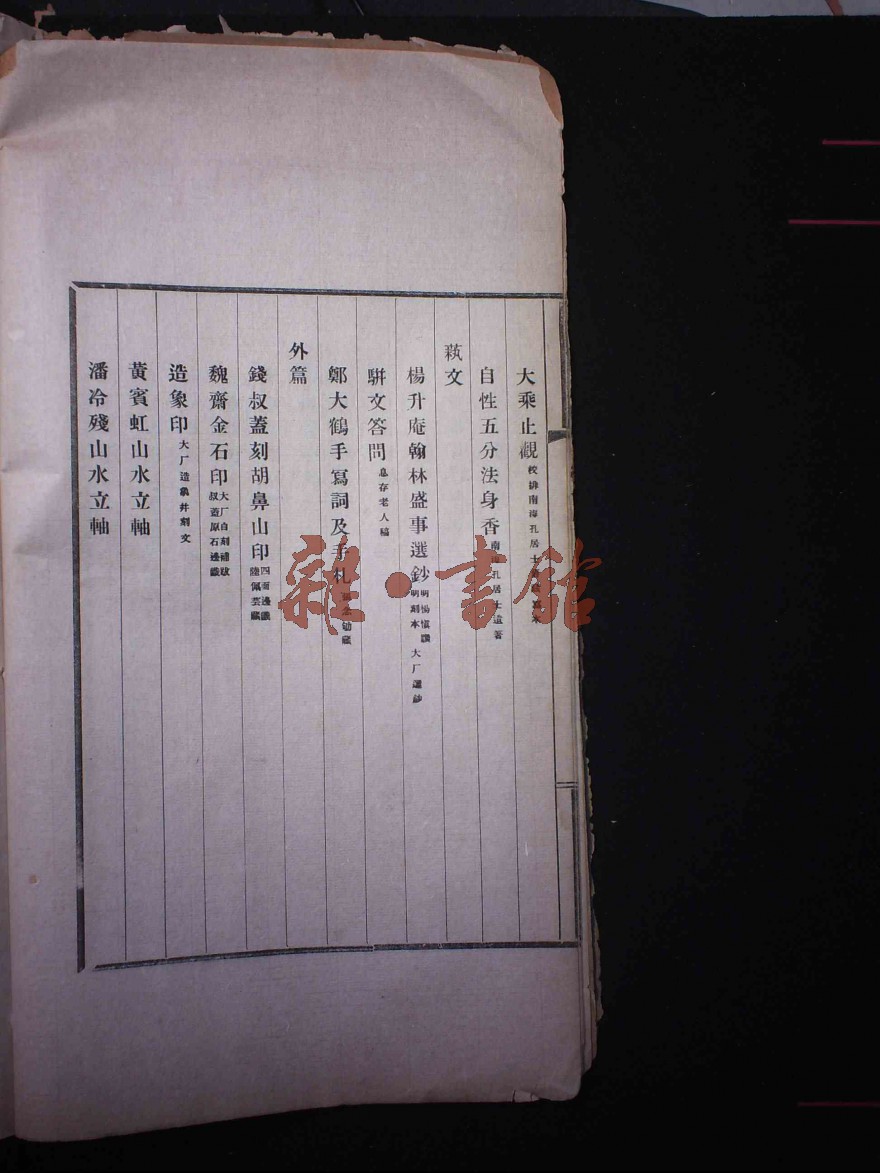 大乘止觀 校緋南海孔居士寫本
自性五分法身香 南海孔居士遺著
蓺文
楊升庵翰林盛事選鈔 明楊愼讚 明刻本 大厂選鈔
駢文答問 息存老人稿
鄭大鶴手寫詞及手札 念劬藏
外篇
錢叔蓋刻胡鼻山印 四面邊識 陸佩芸藏
魏齋金石印 大厂自刻補跋 叔蓋原石邊識
造象印 大厂造象幷刻文
黃賓虹山水立軸
潘冷殘山水立軸
雜·書館